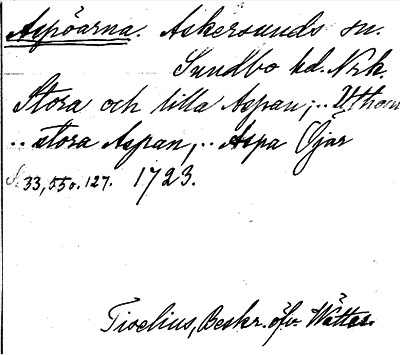 Aspöarna. Askersunds sn.
Sundbo hd. Nrk.
Stora och lilla Aspan; .. Uthom
.. stora Aspan, .. Aspa Öjar
S. 33, 55 o. 127. 1723.
Tiselius, Beskr. öfv. Wätter.